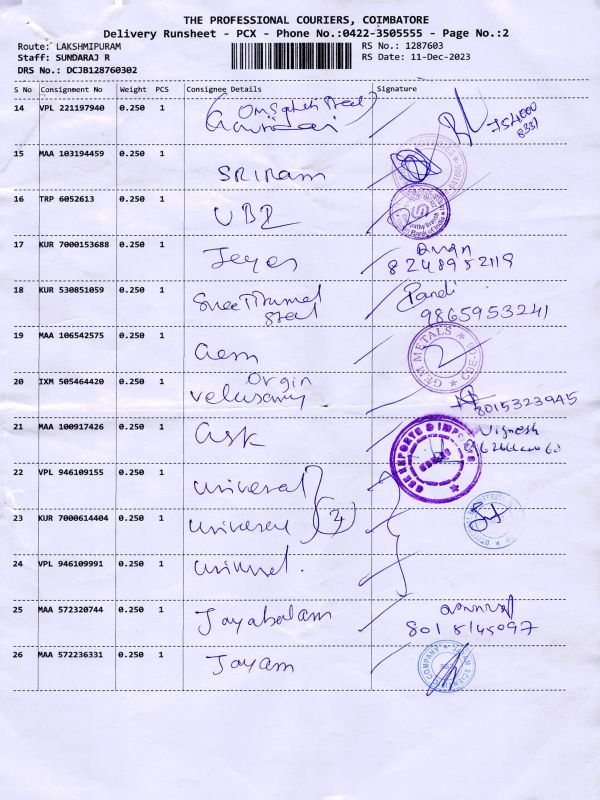 THE PROFESSIONAL COURIERS, COIMBATORE
Delivery Runsheet - PCX - Phone No.:0422-3505555 - Page No.:2
Route: LAKSHMIPURAM RS No.: 1287603
Staff: SUNDARAJ R RS Date: 11-Dec-2023
DRS No.: DCJB128760302
S No Consignment No Weight PCS Consignee Details Signature
14 VPL 221197940 0.250 1
15 MAA 103194459 0.250 1 SRIRAM
16 TRP 6052613 0.250 1 UBI
17 KUR 7000153688 0.250 1 Jeyes
8248952119
18 KUR 530851059 0.250 1 Sree Tirumal Pandi
Steel 9865953241
19 MAA 106542575 0.250 1 Gem GEM METALS
20 IXM 505464420 0.250 1 Orgin
Velusamy 8015323945
21 MAA 100917426 0.250 1 Gsk Vignesh
22 VPL 946109155 0.250 1 Universal
23 KUR 7000614404 0.250 1 Universal
24 VPL 946109991 0.250 1
25 MAA 572320744 0.250 1 Jayabalam
26 MAA 572236331 0.250 1 Jayam